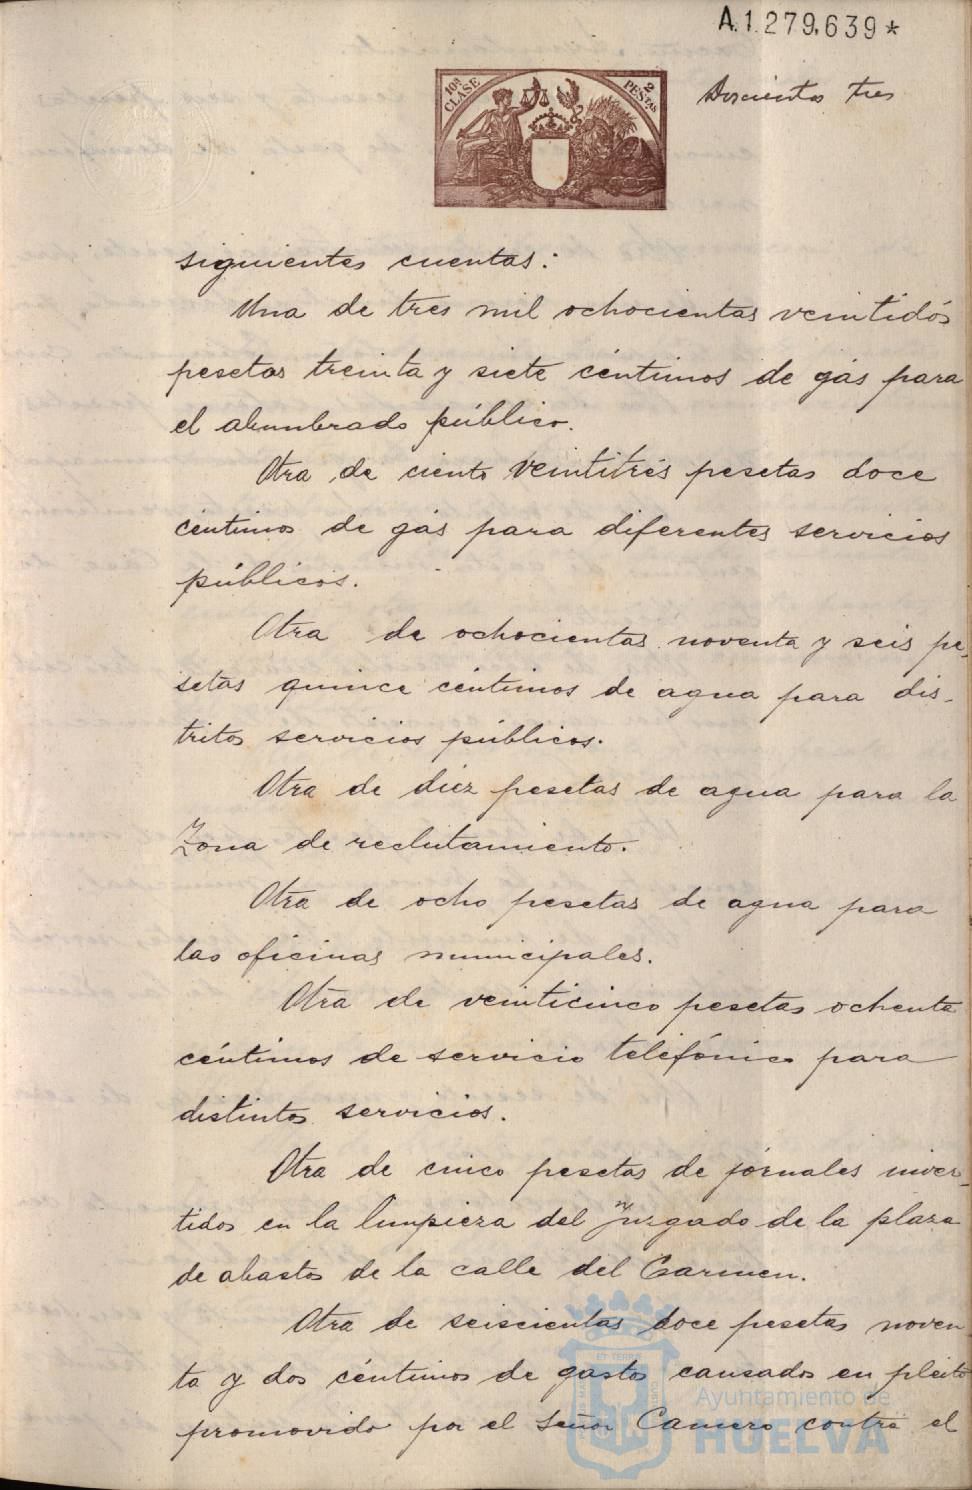 A.1.279,639*
10ª CLASE
2 PESTAS
Doscientos tres
siguientes cuentas:
Una de tres mil ochocientas veintidós
pesetas treinta y siete céntimos de gás para
el alumbrado público.
Otra de ciento veintitrés pesetas doce
céntimos de gás para diferentes servicios
públicos.
Otra de ochocientas noventa y seis pe-
setas quince céntimos de agua para dis-
tritos servicios públicos.
Otra de diez pesetas de agua para la
Zona de reclutamiento.
Otra de ocho pesetas de agua para
las oficinas municipales.
Otra de veinticinco pesetas ochenta
céntimos de servicio telefónico para
distintos servicios.
Otra de cinco pesetas de jornales inver-
tidos en la limpieza del Juzgado de la plaza
de abastos de la calle del Carmen.
Otra de seiscientas doce pesetas noven-
ta y dos céntimos de gastos causados en pleito
promovido por el señor Camero contra el
Ayuntamiento de
HUELVA